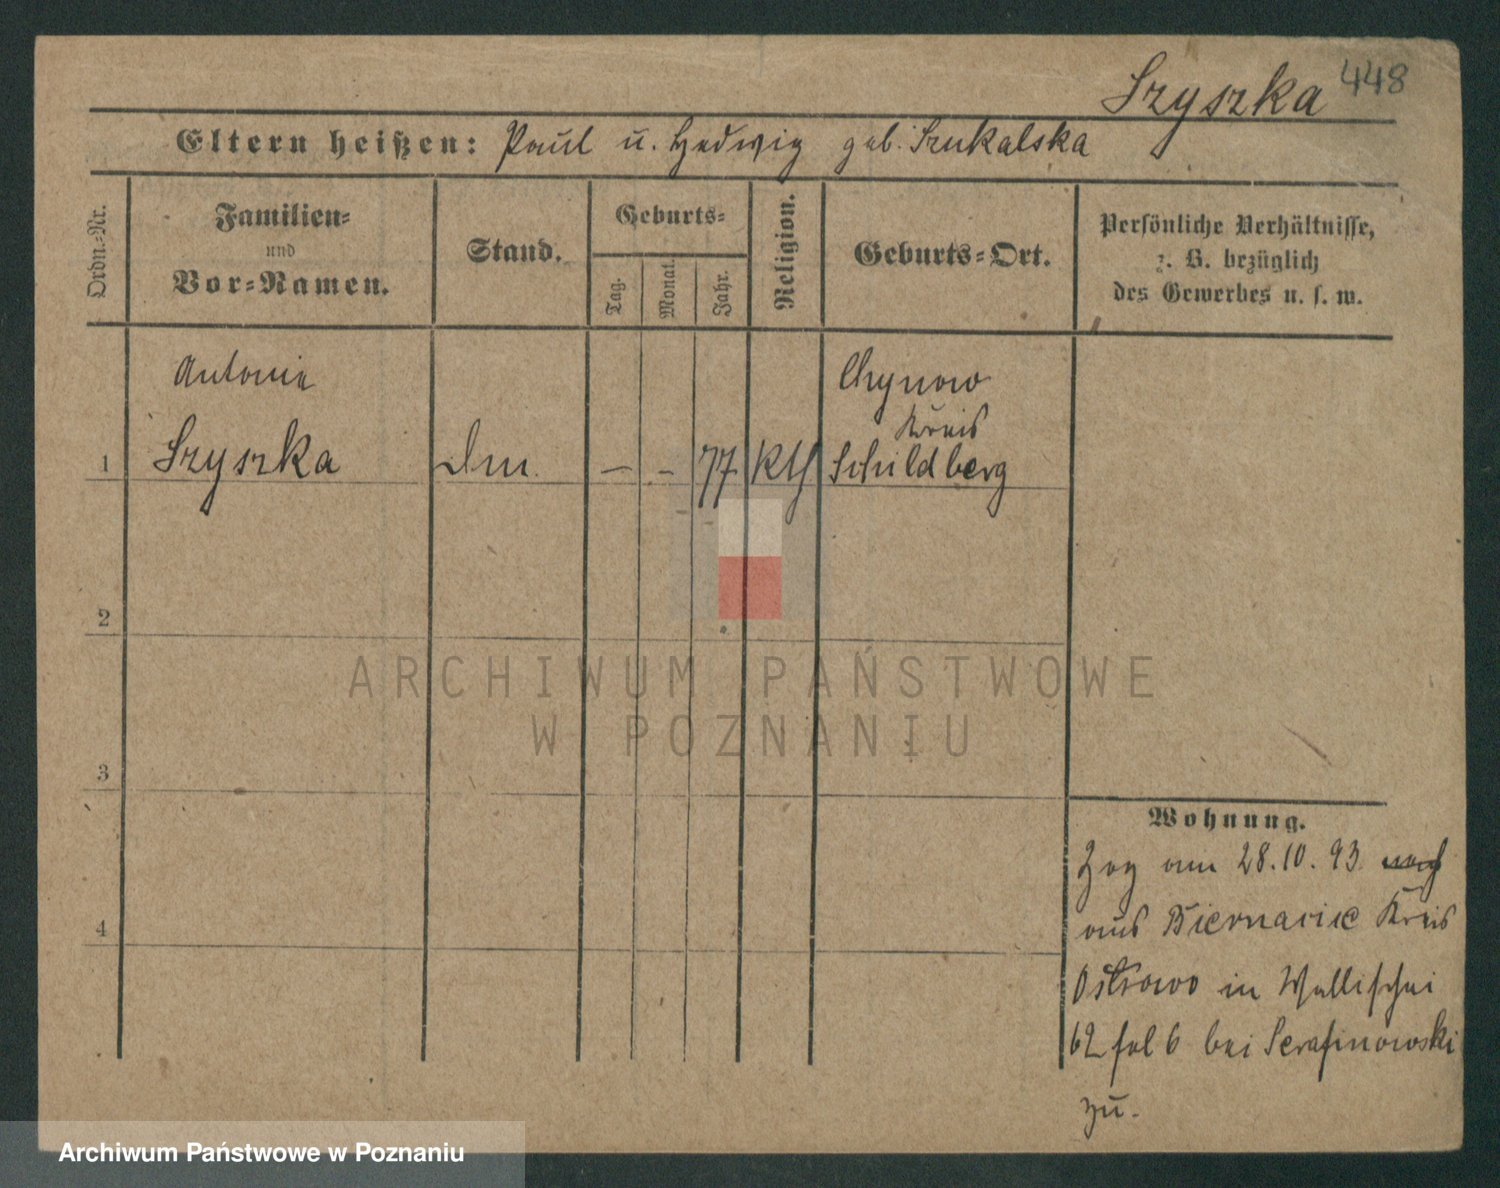 Szyszka 448
Eltern heißen: Paul u. Hedwig geb. Szukalska
Ordn.=Nr.
Familien=
und
Vor=Namen.
Stand.
Geburts=
Tag.
Monat.
Jahr.
Religion.
Geburts=Ort.
Persönliche Verhältnisse,
z. B. bezüglich
des Gewerbes u. s. w.
Antonie
Chynow
Kreis
1 Szyszka — - 77 Kth Schildberg
2
ARCHIWUM PAŃSTWOWE
W POZNANIU
3
4
Wohnung.
Zog am 28.10.93 nach
aus Biernacice Kreis
Ostrowo in Wallischei
62 fol 6 bei Serafinowski
zu.
Archiwum Państwowe w Poznaniu